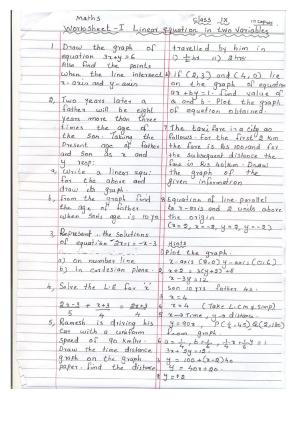 Maths
Class IX
Worksheet-I Linear Equation in two Variables
1. Draw the graph of
equation 3x+y=6
Also find the points
when the line intersect
x-axis and y-axis
2. Two years later a
father will be eight
years more than three
times the age of
the son. Taking the
Present age of father
and son as x and
y resp:
a, Write a linear equ:
for the above and
draw its graph.
b, From the graph find
the age of father
when son's age is 10 yrs
3. Represent the solutions
of equation 2x+1=x-3
a) on number line
b) In cartesian plane.
4, Solve the L.E for 'x'
5, Ramesh is driving his
car with a uniform
speed of 90 km/hr.
Draw the time distance
graph on the graph
paper. find the distance
travelled by him in
i) ½ hrs ii) 2 hrs
6 If (2,3) and (4,0) lie
on the graph of equation
ax+by=1. find value of
a and b. Plot the graph
of equation obtained.
7. The taxi fare in a city as
follows For the first 2 km
the fare is Rs 100 and for
the subsequent distance the
fare is Rs 40/km. Draw
the graph of the
given information
8 Equation of line parallel
to x-axis and 2 units above
the origin
(x=2, x=-2, y=2, y=-2)
Hints
1 Plot the graph.
x-axis (2,0) y-axis (0,6)
2, x+2=3(y+2)+8
x-3y=12
son 10 yrs father 42.
3 x=-4
4, x=4 (Take L.C.M & simp)
5, x→time, y→distance
y=90x,
from graph
3x+5y=12.
7, y=100+(x-2)40
y=40x+20.
8, y=+2